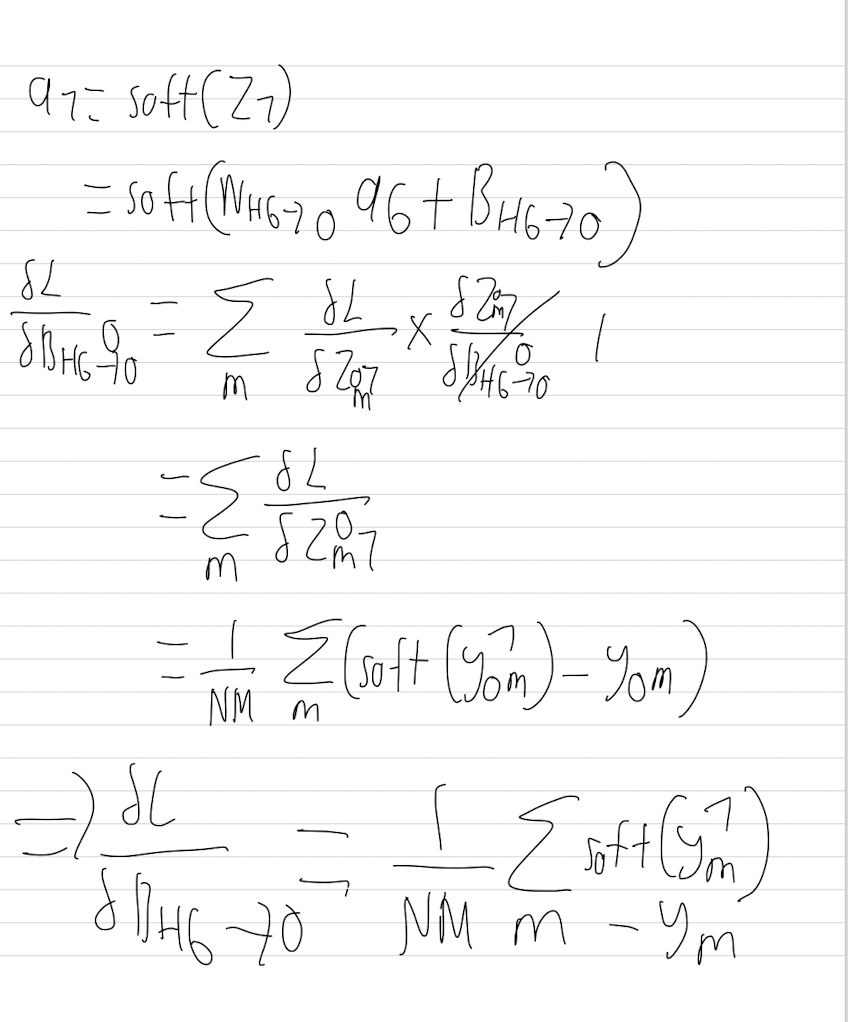 a_7 = soft(Z_7)
= soft(W_{H6→0} a_6 + B_{H6→0})
δL/δB^0_{H6→0} = Σ_m δL/δZ^0_{m7} × δZ^0_{m7}/δB^0_{H6→0} 1
= Σ_m δL/δZ^0_{m7}
= 1/NM Σ_m (soft(y^7_{0m}) - y_{0m})
⇒ δL/δB_{H6→0} = 1/NM Σ_m soft(y^7_m) - y_m